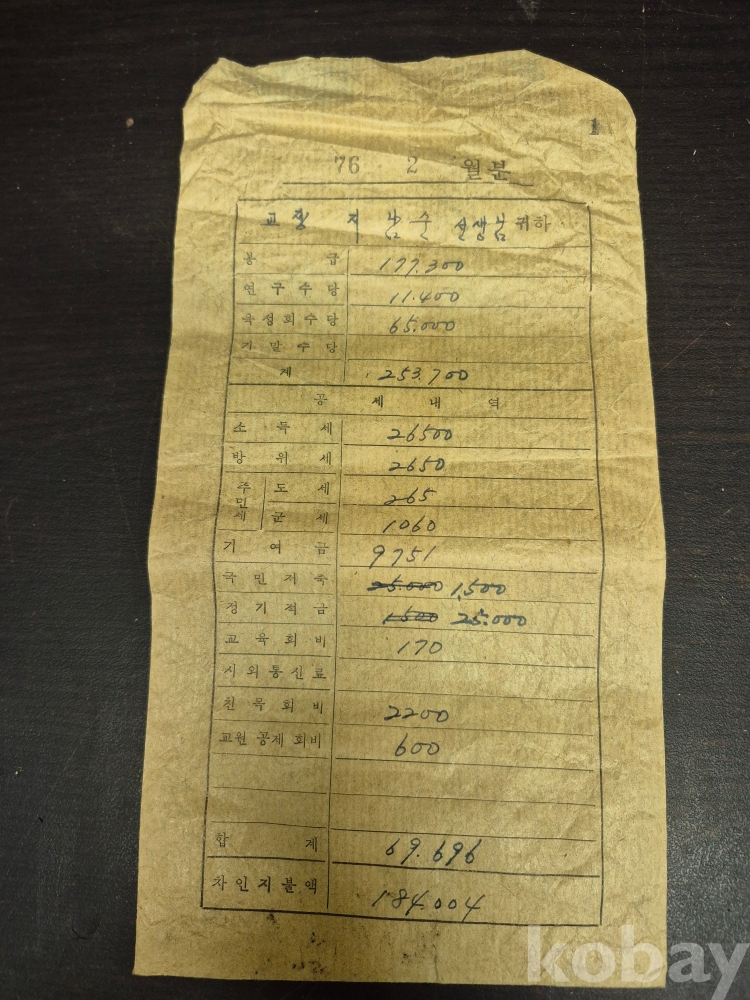 1
76 2 월분
교장 지 남순 선생님 귀하
봉급 177.300
연구수당 11.400
육성회수당 65.000
기말수당
계 253.700
공제내역
소득세 26500
방위세 2650
주민세 도세 265
군세 1060
기여금 9751
국민저축 25.000 1,500
정기적금 1500 25.000
교육회비 170
시외통신료
친목회비 2200
교원공제회비 600
합계 69.696
차인지불액 184.004
kobay